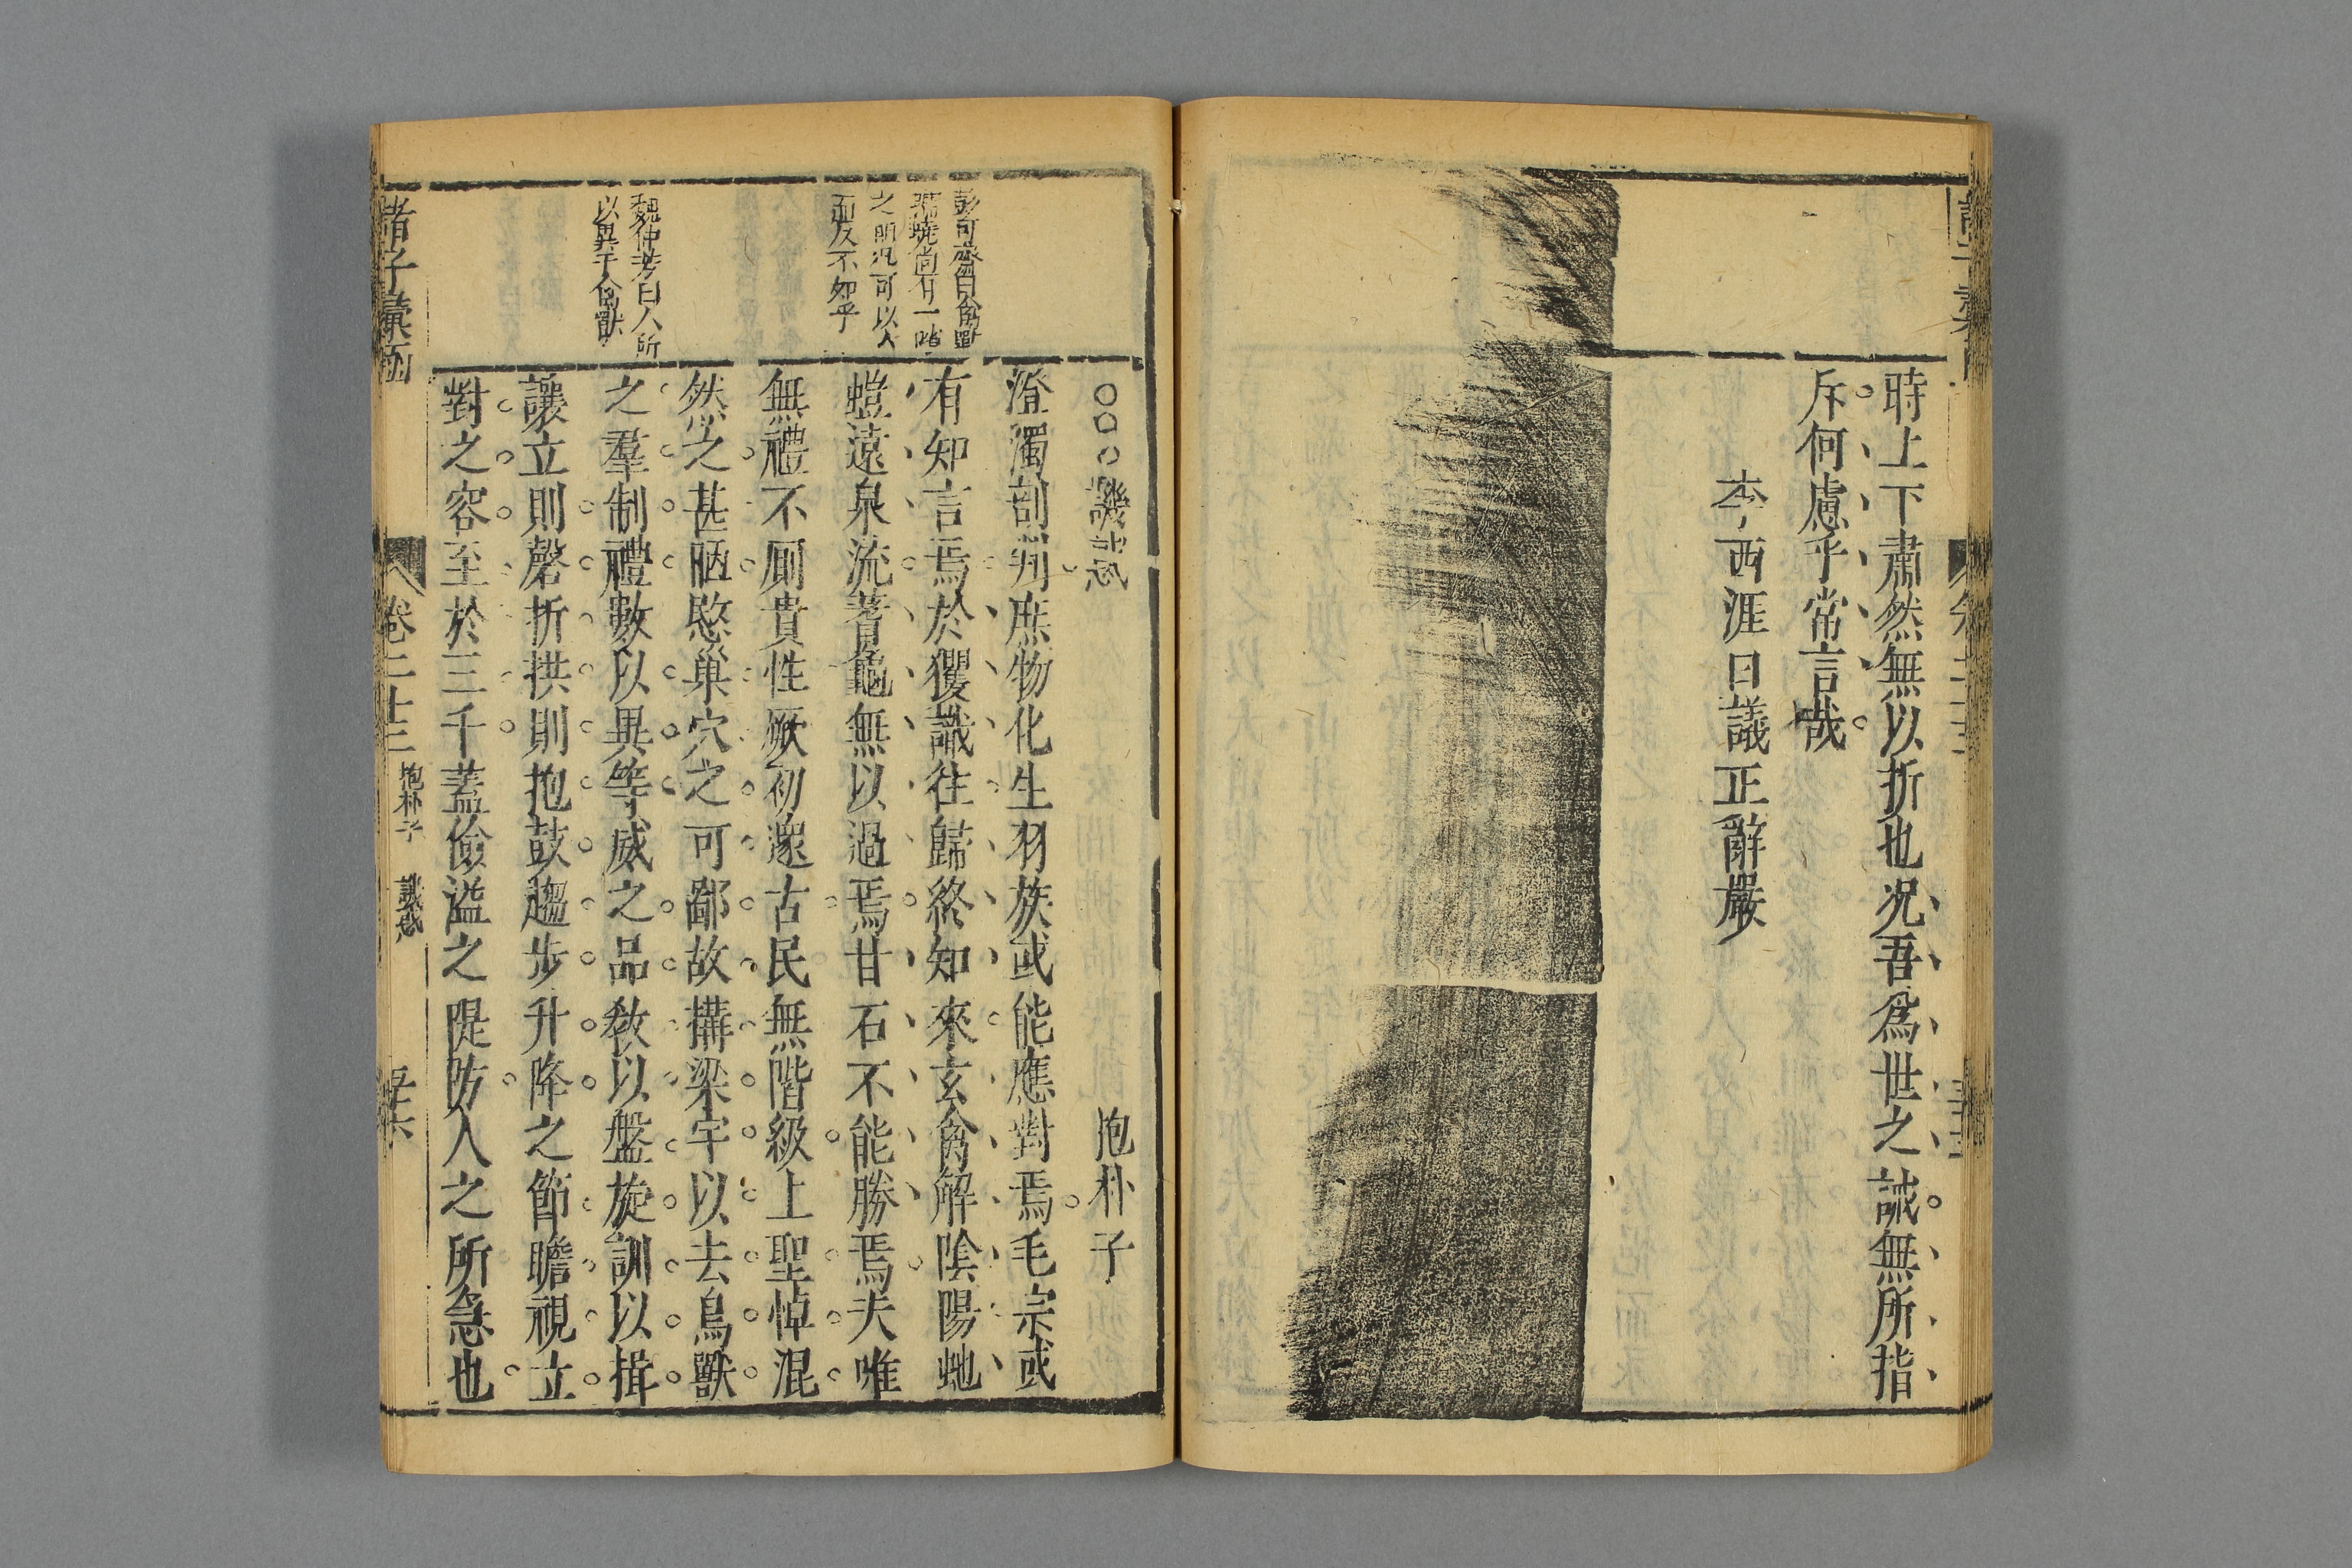 時上下肅然無以折也况吾爲世之誡無所指
斥何慮乎常言哉
李西涯曰議正辭嚴
○○○譏惑
抱朴子
澄濁剖判庶物化生羽族或能應對焉毛宗或
有知言焉於玃識往歸終知來玄禽解陰陽虵
螘遠泉流蓍龜無以過焉甘石不能勝焉夫唯
無禮不厠貴性厥初邃古民無階級上聖悼混
然之甚陋愍巢穴之可鄙故構梁宇以去鳥獸
之羣制禮數以異等威之品敎以盤旋訓以揖
讓立則磬折拱則抱鼓趨步升降之節瞻視立
對之容至於三千蓋儉溢之隄防人之所急也
之明况可以人
而反不如乎
魏仲芳曰人所
以異于禽獸
諸子彙函
卷二十三
抱朴子
譏惑